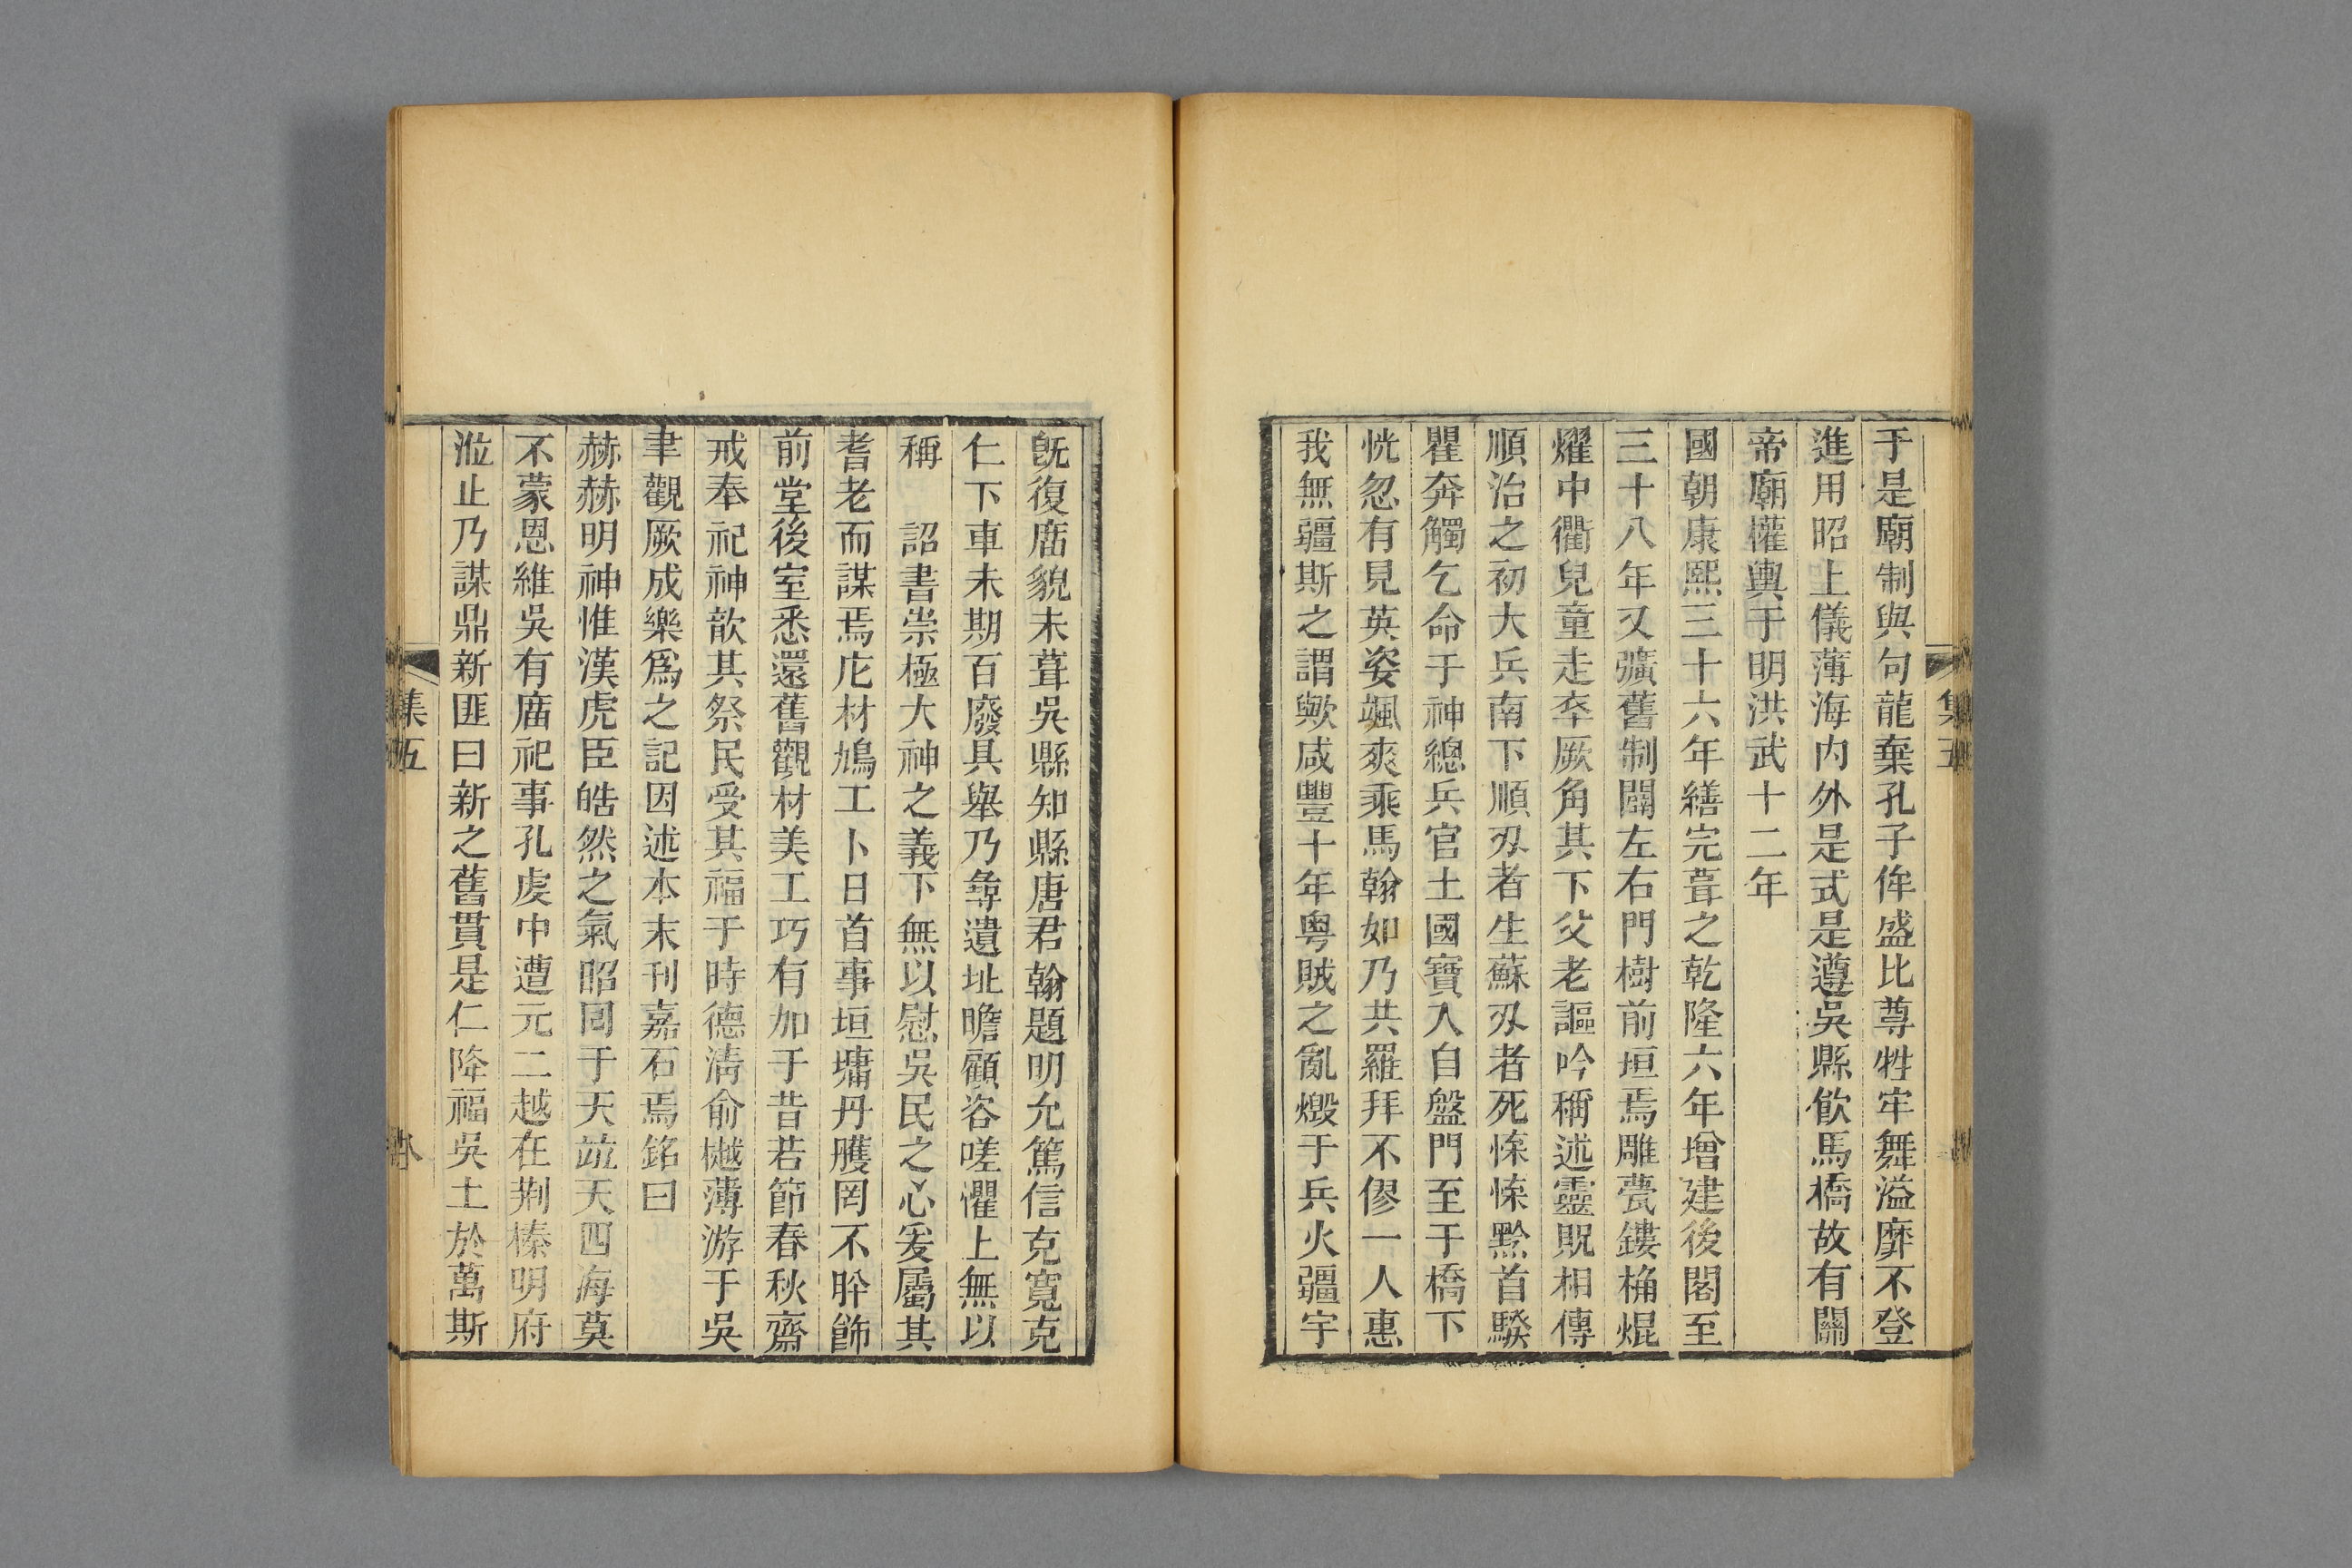 于是廟制與句龍棄孔子侔盛比尊牲牢舞溢靡不登
進用昭上儀薄海内外是式是遵吳縣飲馬橋故有關
帝廟權輿于明洪武十二年
國朝康熙三十六年繕完葺之乾隆六年增建後閣至
三十八年又彍舊制闢左右門樹前垣焉雕甍鏤桷焜
燿中衢兒童走夲厥角其下父老謳吟稱述靈貺相傳
順治之初大兵南下順刅者生蘇刅者死悚悚黔首騤
瞿奔觸乞命于神總兵官土國寶入自盤門至于橋下
恍忽有見英姿颯爽乘馬翰如乃共羅拜不僇一人惠
我無疆斯之謂歟咸豐十年粤賊之亂燬于兵火疆宇
旣復庿貌未葺吳縣知縣唐君翰題明允篤信克寬克
仁下車未期百廢具舉乃㝷遺址瞻顧咨嗟懼上無以
稱　詔書崇極大神之義下無以慰吳民之心爰屬其
耆老而謀焉庀材鳩工卜日首事垣墉丹雘罔不肸飾
前堂後室悉還舊觀材美工巧有加于昔若節春秋齋
戒奉祀神歆其祭民受其福于時德淸俞樾薄游于吳
聿觀厥成樂爲之記因述本末刊嘉石焉銘曰
赫赫明神惟漢虎臣皓然之氣昭囘于天竝天四海莫
不蒙恩維吳有庿祀事孔虔中遭元二越在荆榛明府
涖止乃謀鼎新匪曰新之舊貫是仁降福吳土於萬斯
集五